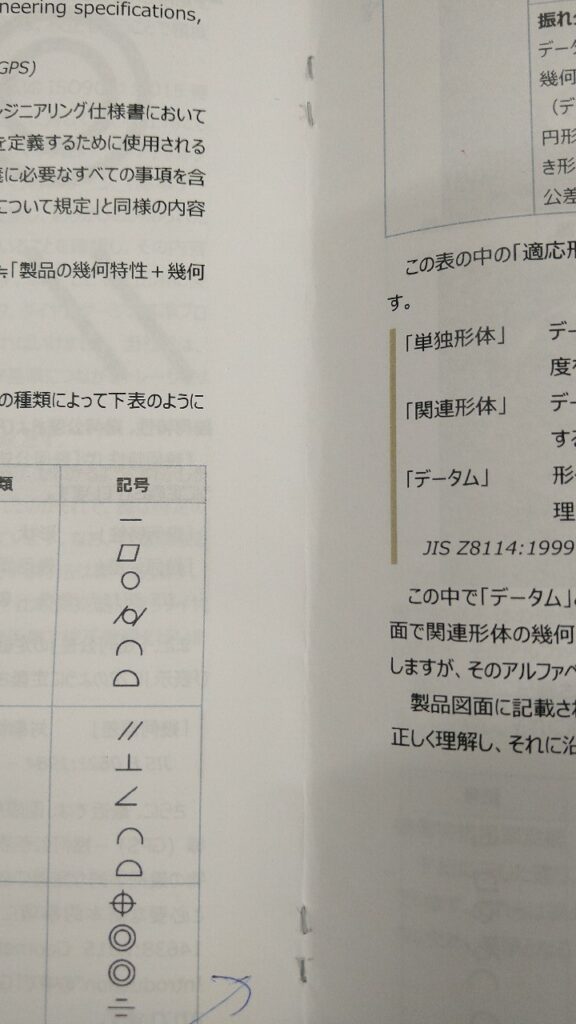 neering specifications,
GPS)
ンジニアリング仕様書において
を定義するために使用される
に必要なすべての事項を含
について規定」と同様の内容
≒「製品の幾何特性+幾何
の種類によって下表のように
類
記号
—
▱
○
⌭
⌒
⌓
⫽
⊥
∠
⌒
⌓
⌖
◎
◎
⌯
振れ
データ
幾何
(デ
円形
き形
公差
この表の中の「適応形
す。
「単独形体」 デー
度を
「関連形体」 デー
する
「データム」 形
理
JIS Z8114:1999
この中で「データム」
面で関連形体の幾何
しますが、そのアルファベ
製品図面に記載され
正しく理解し、それに沿